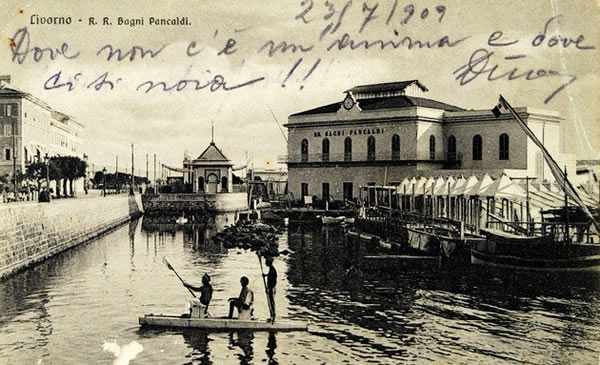 Livorno - R. R. Bagni Pancaldi.
23/7/909
Dove non c'è un'anima e dove
ci si noia!!
RR. BAGNI PANCALDI